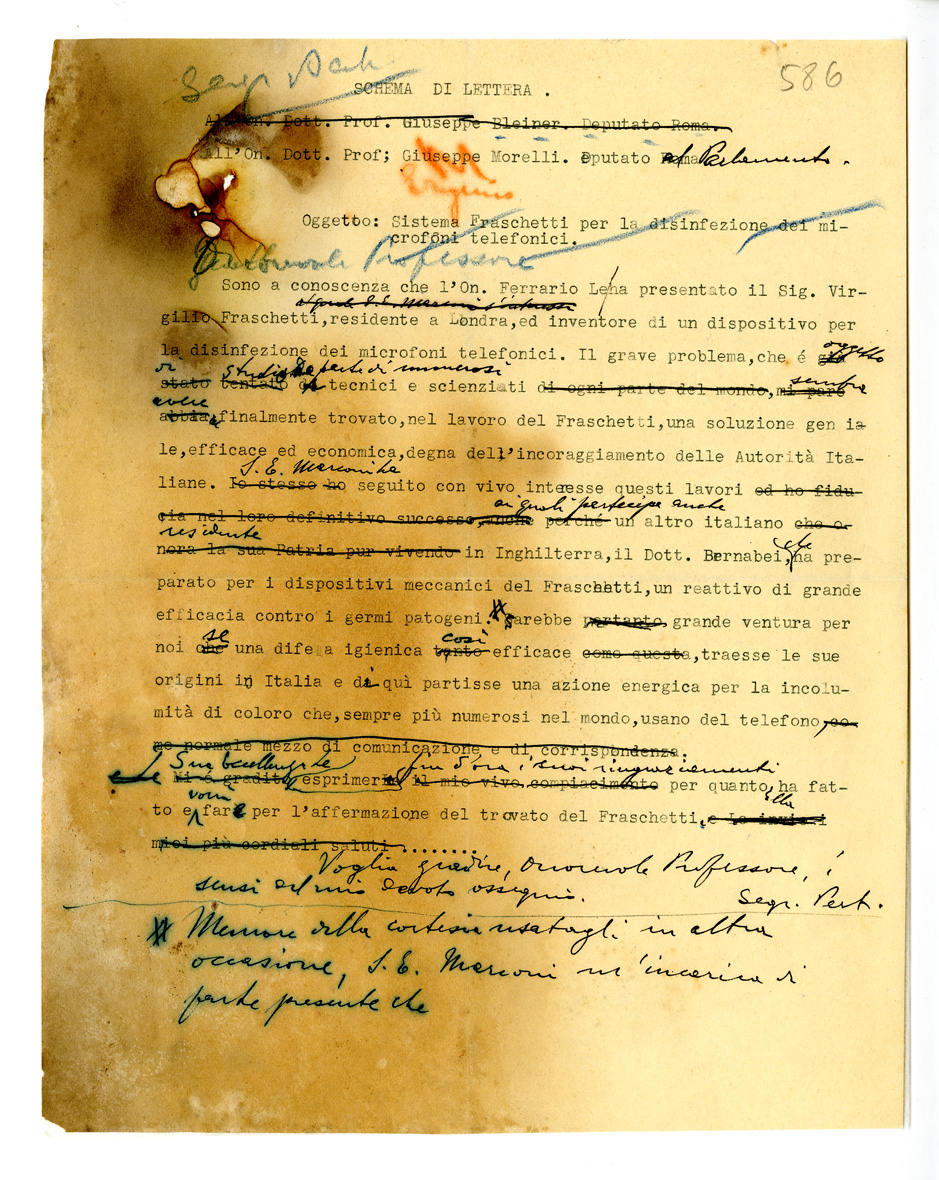 Segr. Part.
586
SCHEMA DI LETTERA .
All'On. Dott. Prof. Giuseppe Bleiner. Deputato Roma.
All'On. Dott. Prof; Giuseppe Morelli. eputato Roma al Parlamento.
Oggetto: Sistema Fraschetti per la disinfezione dei mi-
crofoni telefonici.
Onorevole Professore
Sono a conoscenza che l'On. Ferrario Le ha presentato il Sig. Vir-
al quale S.E. Marconi s'interessa
gilio Fraschetti,residente a Londra,ed inventore di un dispositivo per
la disinfezione dei microfoni telefonici. Il grave problema,che é già oggetto
di studio da parte di numerosi
stato tentato da tecnici e scienziati di ogni parte del mondo,mi pare sembra
avere
abbia finalmente trovato,nel lavoro del Fraschetti,una soluzione gen ia-
le,efficace ed economica,degna dell'incoraggiamento delle Autorità Ita-
S.E. Marconi ha
liane. Io stesso ho seguito con vivo interesse questi lavori ed ho fidu-
ai quali partecipa anche
cia nel loro definitivo successo,anche perché un altro italiano che o-
residente
nora la sua Patria pur vivendo in Inghilterra,il Dott. Bernabei, che ha pre-
parato per i dispositivi meccanici del Fraschetti,un reattivo di grande
efficacia contro i germi patogeni. Sarebbe pertanto, grande ventura per
se così
noi che una difesa igienica tanto efficace come questa,traesse le sue
origini in Italia e di quì partisse una azione energica per la incolu-
mità di coloro che,sempre più numerosi nel mondo,usano del telefono,co-
me normale mezzo di comunicazione e di corrispondenza.
Sua Eccellenza fin d'ora i suoi ringraziamenti
Mi é gradito esprimerle il mio vivo compiacimento per quanto Ella ha fat-
vorrà
to e fare per l'affermazione del trovato del Fraschetti, e Le invio i
miei più cordiali saluti ........
Voglia gradire, Onorevole Professore, i
sensi del mio devoto ossequio.
Segr. Part.
Memore della cortesia usatagli in altra
occasione, S.E. Marconi m'incarica di
farLe presente che